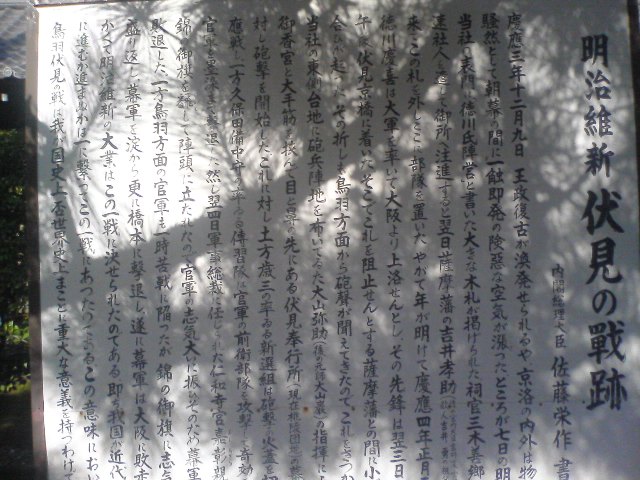 明治維新 伏見の戰跡
内閣総理大臣 佐藤栄作 書
慶應三年十二月九日 王政復古が渙発せられるや、京洛の内外は物
騒然として朝幕の間に一触即発の険悪な空気が漲った ところが七日の明
当社の表門に徳川氏陣営と書いた大きな木札が掲げられた 祠官三木善郷
達社人を遣して御所へ注進すると翌日薩摩藩の吉井孝助
来てこの札を外しここに部隊を置いた やがて年が明けて慶應四年正月
徳川慶喜は大軍を率いて大阪より上洛せんとし、その先鋒は翌三日
午後伏見京橋に着いた そこでこれを阻止せんとする薩摩藩との間に小
合が起った その折しも鳥羽方面から砲聲が聞えてきたので、これをきっか
当社の東側台地に砲兵陣地を布いてゐた大山弥助 の指揮に
御香宮と大手筋を挟んで目と鼻の先にある伏見奉行所
対し砲撃を開始した これに対し土方歳三の率ゐる新選組は砲撃の火蓋を切
應戰し一方久保田備中守の率ゐる傳習隊は官軍の前衛部隊を攻撃して奇功
官軍を墨染まで撃退した 然し翌四日軍事総裁に任じられた仁和寺宮嘉彰親
錦の御旗を飜して陣頭に立たれたので官軍の志気大いに振いそのため幕軍
敗退した 一方鳥羽方面の官軍も一時苦戰に陥ったが錦の御旗に志気
盛り返し幕軍を淀から更に橋本に撃退し遂に幕軍は大阪に敗
かくて明治維新の大業はこの一戰に決せられたのである 即ち我国が近代
に進むか進まぬかは一つに撃ってこの一戰にあったのである この意味におい
鳥羽伏見の戰は我が国史上否世界史上まことに重大な意義を持つわけで